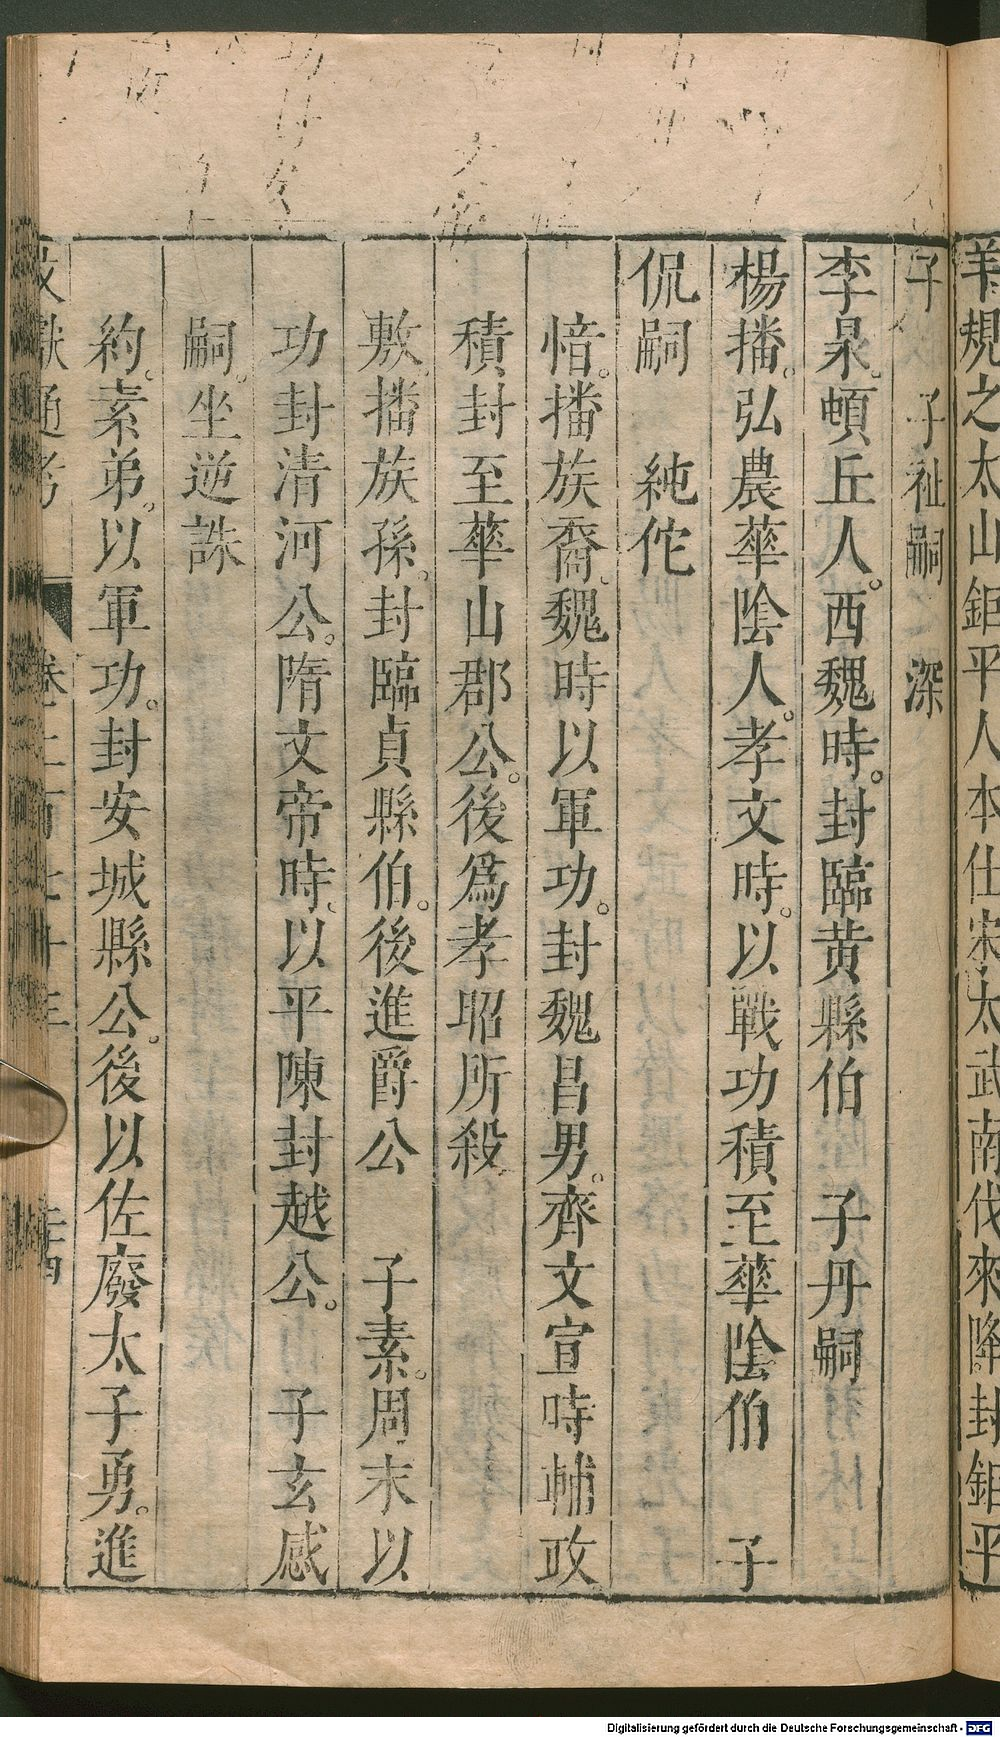 羊規之太山鉅平人本仕宋太武南伐來降封鉅平
子　子祉嗣　深
李杲。頓丘人。西魏時。封臨黄縣伯　子丹嗣
楊播。弘農華陰人。孝文時。以戰功積至華陰伯　子
侃嗣　純佗
愔。播族裔。魏時以軍功。封魏昌男。齊文宣時輔政
積封至華山郡公。後爲孝昭所殺
敷。播族孫。封臨貞縣伯。後進爵公　子素。周末以
功封清河公。隋文帝時。以平陳封越公。　子玄感
嗣。坐逆誅
約。素弟。以軍功。封安城縣公。後以佐廢太子勇。進
文獻通考　卷二百七十三　
Digitalisierung gefördert durch die Deutsche Forschungsgemeinschaft - DFG